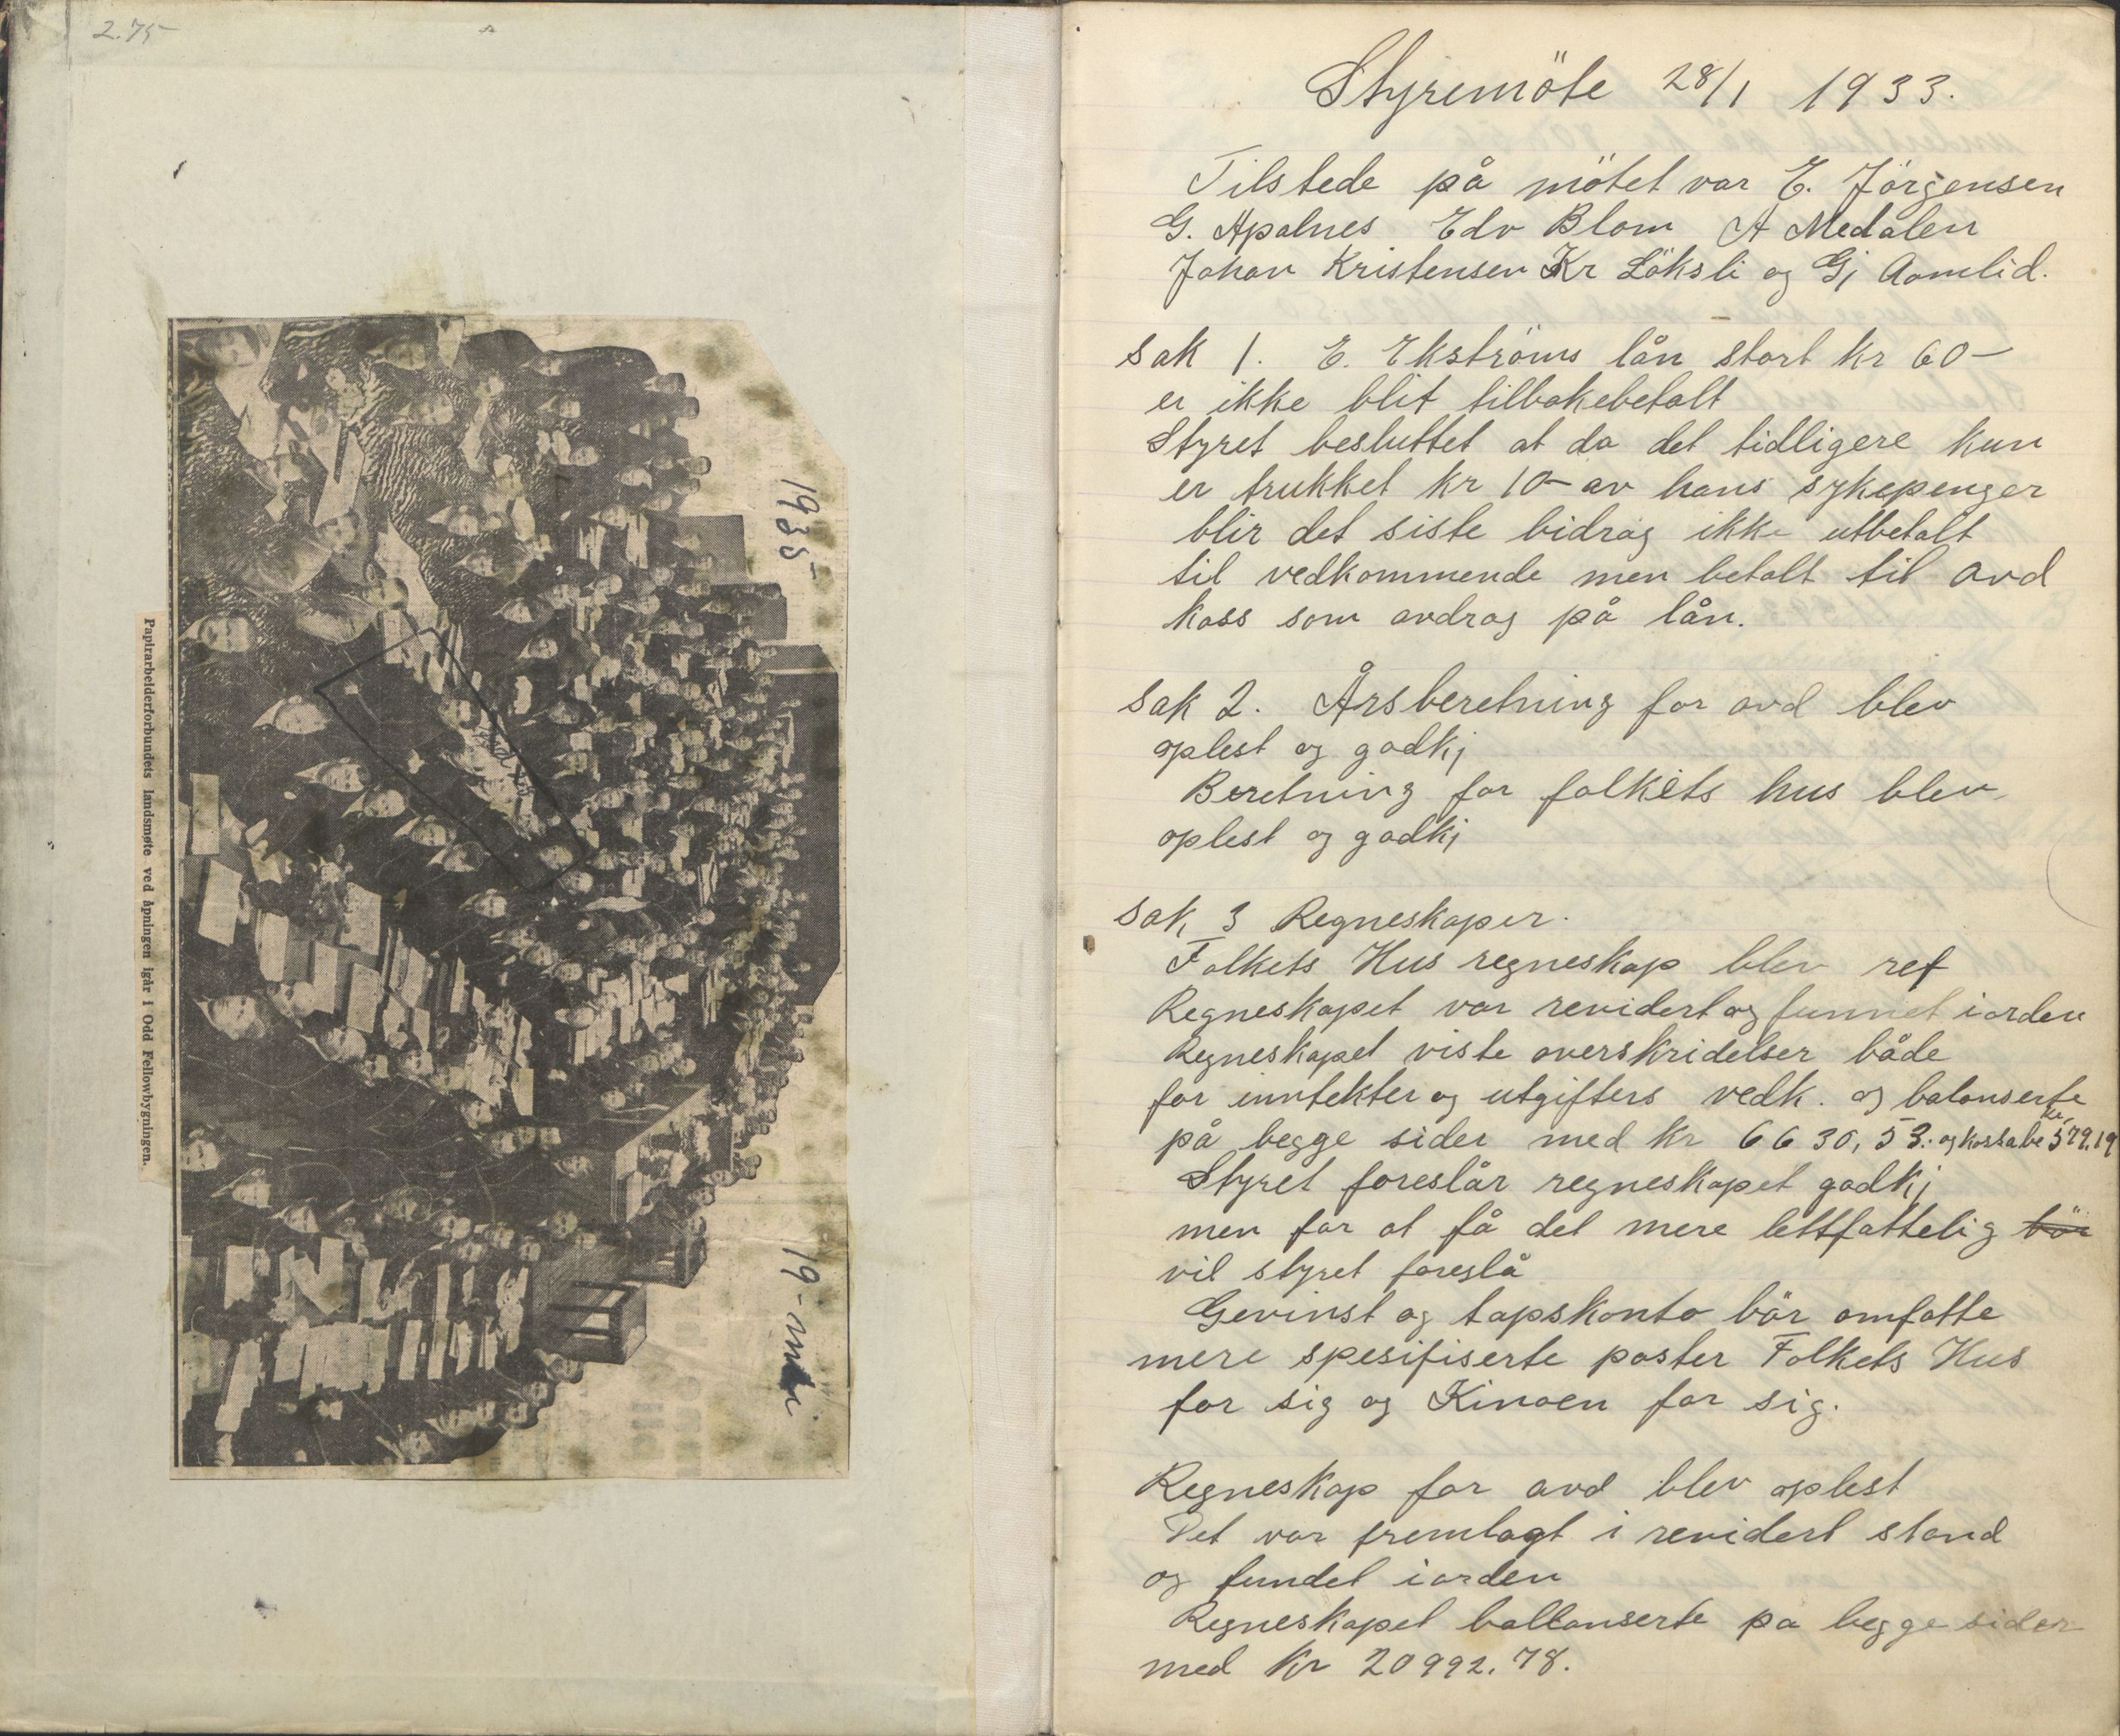 2.75
1935
19-
Papirarbeiderforbundets landsmøte ved åpningen igår i Odd Fellowbygningen.
Styremöte 28/1 1933.
Tilstede på mötet var E. Jörgensen
G. Apalnes Edv Blom A Medalen
Johan Kristensen Kr Löksli og Gj Aamlid.
sak 1. E. Ekströms lån stort kr 60-
er ikke blit tilbakebetalt
Styret besluttet at da det tidligere kun
er trukket kr 10- av hans sykepenger
blir det siste bidrag ikke utbetalt
til vedkommende men betalt til avd
kass som avdrag på lån.
sak 2. Årsberetning for avd blev
oplest og godkj
Beretning for folkets hus blev
oplest og godkj
sak 3 Regneskaper.
Folkets Hus regneskap blev ref
Regneskapet var revidert og funnet iorden
Regneskapet viste overskridelser både
for inntekter og utgifters vedk. og balanserte
på begge sider med kr 6630,53. og kassabe 579.19
Styret foreslår regneskapet godkj
men for at få det mere lettfattelig bör
vil styret foreslå
Gevinst og tapskonto bör omfatte
mere spesifiserte poster Folkets Hus
for sig og Kinoen for sig.
Regneskap for avd blev oplest
Det var fremlagt i revidert stand
og fundet iorden
Regneskapet ballanserte pa begge sider
med kr 20992.78.